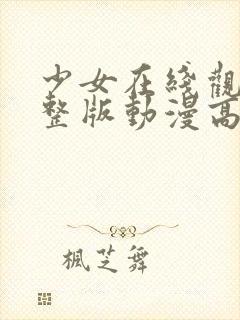 少女在线觀
整版動漫高
楓芝舞